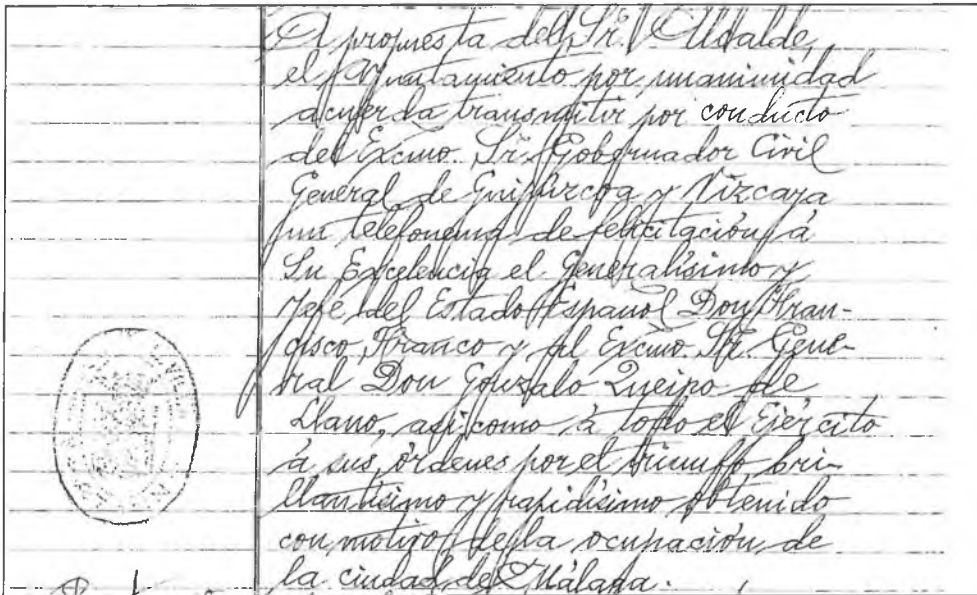 A propuesta del Sr. Alcalde,
el Ayuntamiento por unanimidad
acuerda transmitir por conducto
del Excmo. Sr. Gobernador Civil
General de Guipúrcoa y Vizcaya
un telefonema de felicitación á
Su Excelencia el Generalísimo y
Jefe del Estado Español Don Fran-
cisco Franco y al Excmo. Sr. Gene-
ral Don Gonzalo Queipo de
Llano, así como á todo el Ejército
á sus órdenes por el triunfo bri-
llantísimo y rapidísimo obtenido
con motivo de la ocupación de
la ciudad de Málaga.